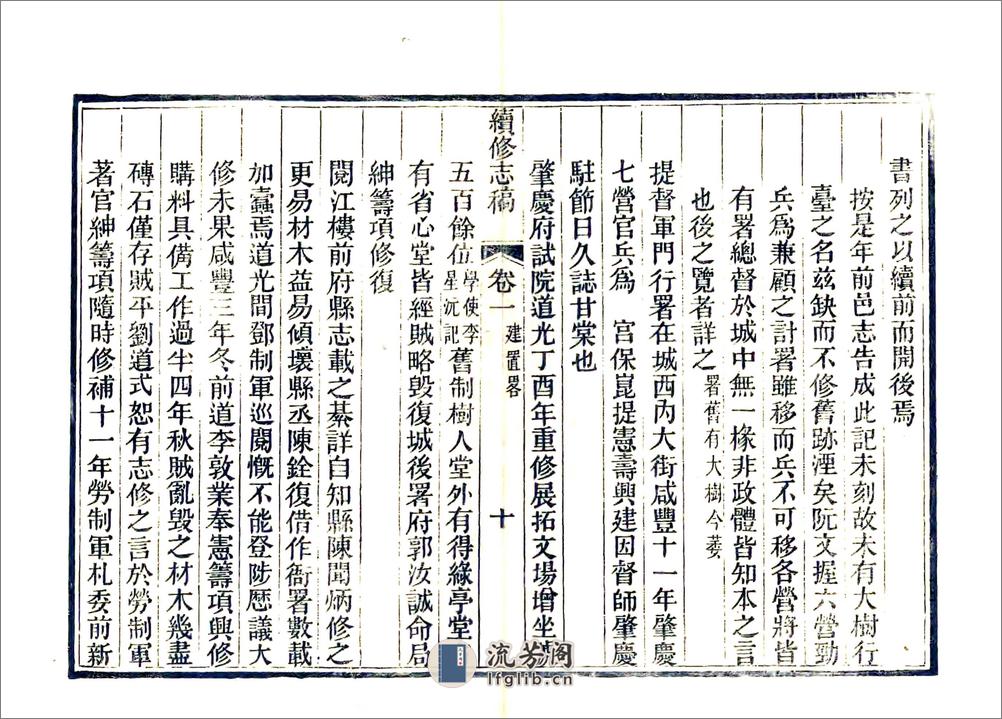 書列之以續前而開後焉
按是年前邑志告成此記未刻故未有大樹行
臺之名茲缺而不修舊跡湮矣阮文握六營勁
兵爲兼顧之計署雖移而兵不可移各營將皆
有署總督於城中無一椽非政體皆知本之言
也後之覽者詳之署舊有大樹今萎
提督軍門行署在城西內大街咸豐十一年肇慶
七營官兵爲 宫保崑提憲壽興建因督師肇慶
駐節日久誌甘棠也
肇慶府試院道光丁酉年重修展拓文場增坐
續修志稿 卷一 建置畧 十
五百餘位學使李星沅記舊制樹人堂外有得緣亭堂
有省心堂皆經賊略毀復城後署府郭汝誠命局
紳籌項修復
閱江樓前府縣志載之綦詳自知縣陳聞炳修之
更易材木益易傾壞縣丞陳銓復借作衙署數載
加蠹焉道光間鄧制軍巡閱慨不能登陟歷議大
修未果咸豐三年冬前道李敦業奉憲籌項興修
購料具備工作過半四年秋賊亂毀之材木幾盡
磚石僅存賊平劉道式恕有志修之言於勞制軍
著官紳籌項隨時修補十一年勞制軍札委前新
流芳閣
lfglib.cn